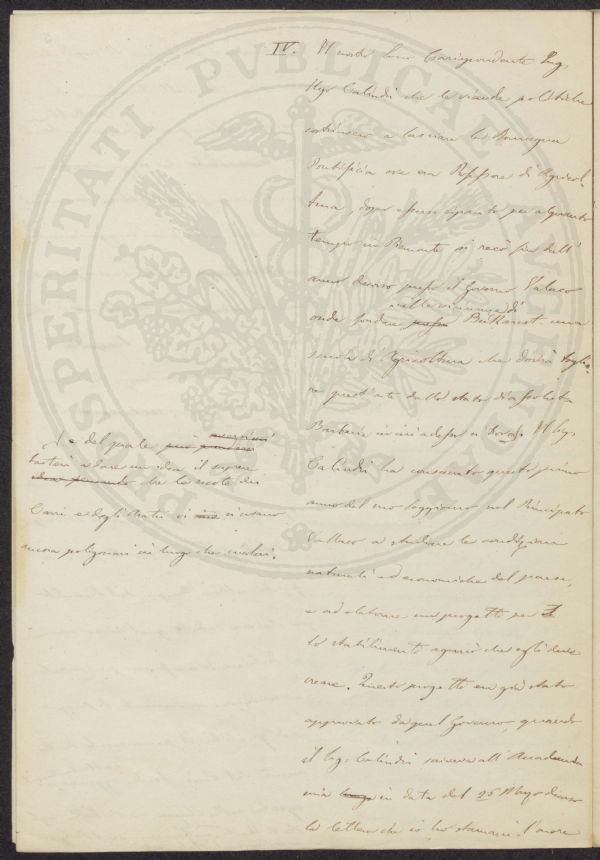 PROSPERITATI PUBLICAE AUGENDAE
IV. Il nostro Socio Corrispondente Ing.
Ugo Calindri che le vicende politiche
costrinsero a lasciare la Romagna
Pontificia ove era Professore di Agricol-
tura, dopo essersi riparato per alquanto
tempo in Piemonte si recò sin dall'
anno decorso presso il Governo Valacco
onde fondare presso nelle vicinanze di Bukarest una
scuola di Agricoltura che dovrà toglie-
re quest'arte dallo stato di assoluta
Barbarie in cui adesso si trova. Il Sig.
Calindri ha consacrato questo primo
anno del suo soggiorno nel Principato
Valacco a studiare le condizioni
naturali ed economiche del paese,
e ad elaborare un progetto per lo
stabilimento agrario che egli deve
creare. Questo progetto era già stato
approvato da quel Governo, quando
il Sig. Calindri scriveva all'Accade
mia in data del 26 Marzo decorso
la lettera che io ho stamani l'onore
e del quale
basterà a dare un'idea il sapere
che le ruote dei
Carri e degli Aratri vi sono
ancora poligonari in luogo che circolari.